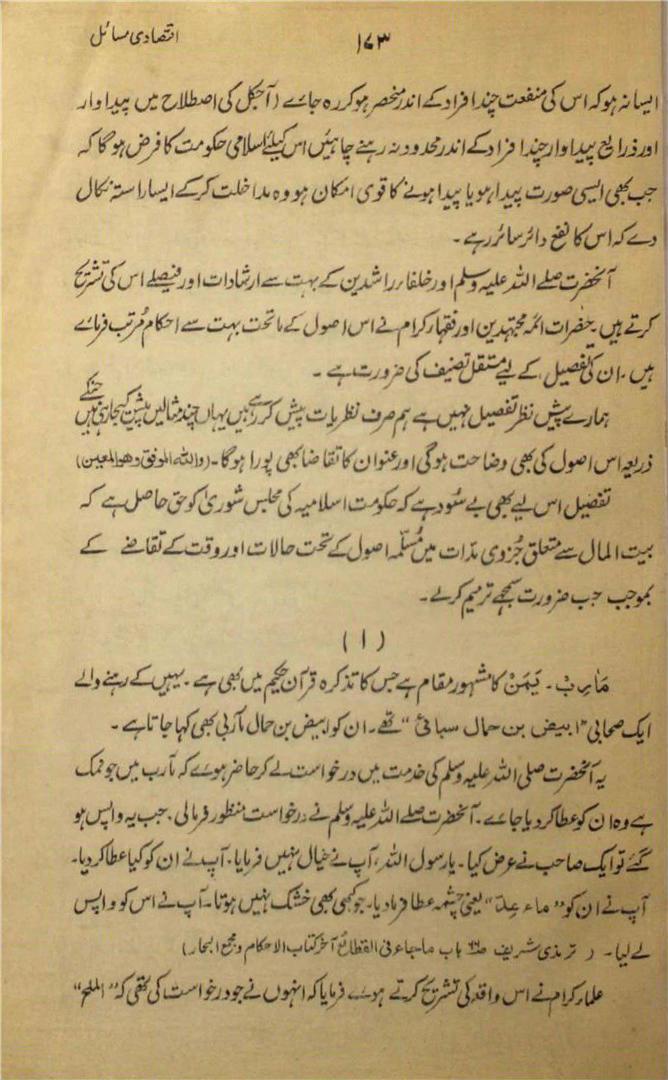 ۱۷۳
اقتصادی مسائل
ایسا نہ ہو کہ اس کی منفعت چند افراد کے اندر منحصر ہو کر رہ جائے (آجکل کی اصطلاح میں پیداوار
اور ذرایع پیداوار چند افراد کے اندر محدود نہ رہنے چاہئیں اس کیلئے اسلامی حکومت کا فرض ہوگا کہ
جب بھی ایسی صورت پیدا ہو یا پیدا ہونے کا قوی امکان ہو وہ مداخلت کرکے ایسا راستہ نکال
دے کہ اس کا نفع دائر سائر رہے۔
آنحضرت صلے اللہ علیہ وسلم اور خلفاء راشدین کے بہت سے ارشادات اور فیصلے اس کی تشریح
کرتے ہیں۔ حضرات ائمہ مجتہدین اور فقہاء کرام نے اس اصول کے ماتحت بہت سے احکام مُرتب فرمائے
ہیں۔ ان کی تفصیل کے لیے مستقل تصنیف کی ضرورت ہے۔
ہمارے پیش نظر تفصیل نہیں ہے ہم صرف نظریات پیش کر رہے ہیں یہاں چند مثالیں پیش کیجا رہی ہیں جنکے
ذریعہ اس اصول کی بھی وضاحت ہوگی اور عنوان کا تقاضا بھی پورا ہوگا۔ (واللہ الموفق وھو المعین)
تفصیل اس لیے بھی بے سُود ہے کہ حکومت اسلامیہ کی مجلس شوریٰ کو حق حاصل ہے کہ
بیت المال سے متعلق جُزوی مدّات میں مُسلّمہ اصول کے تحت حالات اور وقت کے تقاضے کے
بموجب جب ضرورت سمجھے ترمیم کرلے۔
(۱)
مَأرِب۔ یَمَن کا مشہور مقام ہے جس کا تذکرہ قرآن حکیم میں بھی ہے۔ یہیں کے رہنے والے
ایک صحابی "ابیض بن حمال سبائی" تھے۔ ان کو ابیض بن حمال مأربی بھی کہا جاتا ہے۔
یہ آنحضرت صلی اللہ علیہ وسلم کی خدمت میں درخواست لے کر حاضر ہوئے کہ مآرب میں جو نمک
ہے وہ ان کو عطا کردیا جائے۔ آنحضرت صلے اللہ علیہ وسلم نے درخواست منظور فرمالی۔ جب یہ واپس ہو
گئے تو ایک صاحب نے عرض کیا۔ یا رسول اللہ، آپ نے خیال نہیں فرمایا، آپ نے ان کو کیا عطا کردیا۔
آپ نے ان کو "ماء عِدّ" یعنی چشمہ عطا فرمادیا۔ جو کبھی بھی خشک نہیں ہوتا۔ آپ نے اس کو واپس
لے لیا۔ (ترمذی شریف باب ماجاء فی القطائع آخر کتاب الاحکام و مجمع البحار)
علماء کرام نے اس واقعہ کی تشریح کرتے ہوئے فرمایا کہ انہوں نے جو درخواست کی تھی کہ "الملح"